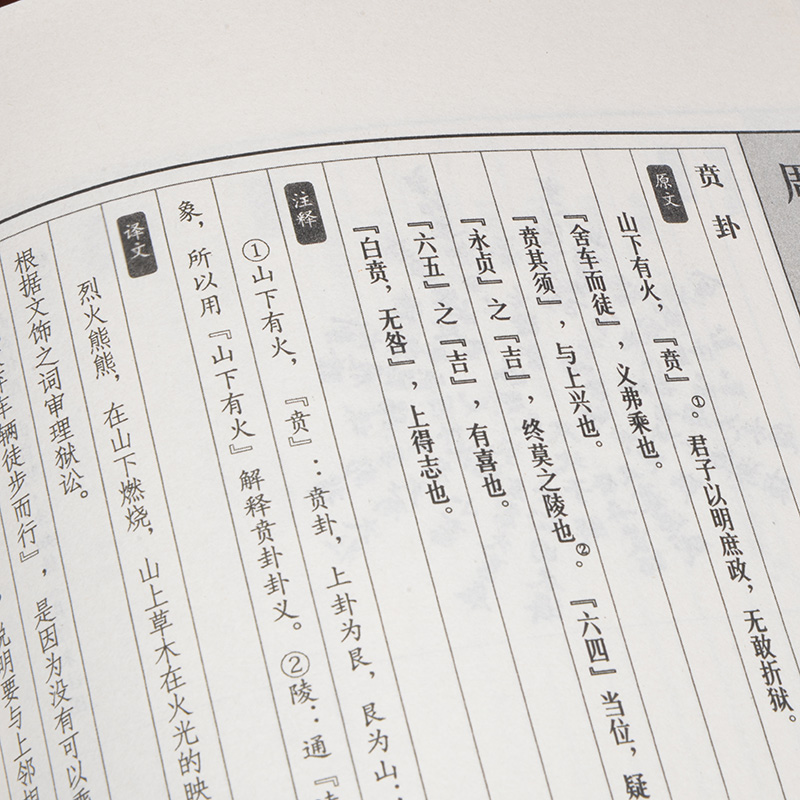 贲卦
原文
山下有火，『贲』①。君子以明庶政，无敢折狱。
『舍车而徒』，义弗乘也。
『贲其须』，与上兴也。
『永贞』之『吉』，终莫之陵也②。『六四』当位，疑
『六五』之『吉』，有喜也。
『白贲，无咎』，上得志也。
注释
①山下有火，『贲』：贲卦，上卦为艮，艮为山：
象，所以用『山下有火』解释贲卦卦义。②陵：通『
译文
烈火熊熊，在山下燃烧，山上草木在火光的映
根据文饰之词审理狱讼。
车辆徒步而行』，是因为没有可以
说明要与上邻